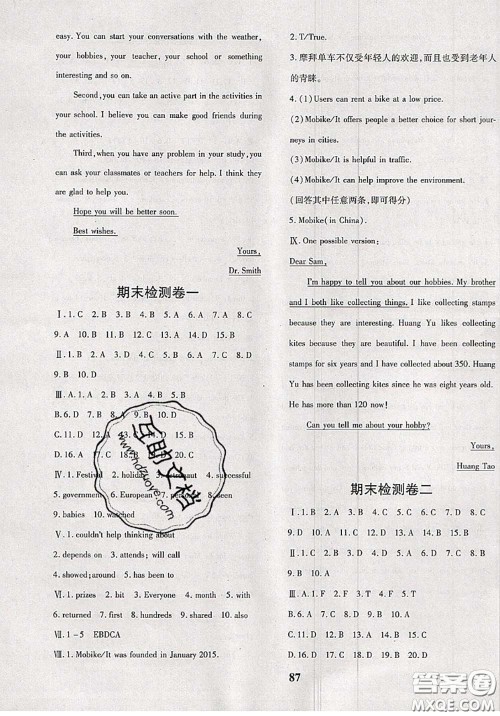 easy. You can start your conversations with the weather,
your hobbies, your teacher, your school or something
interesting and so on.
Second, you can take an active part in the activities
in your school. I believe you can make good friends during
the activities.
Third, when you have any problem in your study, you
can ask your classmates or teachers for help. I think they
are glad to help you.
Hope you will be better soon.
Best wishes.
Yours,
Dr. Smith
期末检测卷一
Ⅰ. 1. C 2. D 3. B 4. B 5. A 6. B 7. A 8. C
9. A 10. D
Ⅱ. 1. B 2. A 3. D 4. B 5. D 6. C 7. D 8. C
9. B 10. D
Ⅲ. A. 1. B 2. B 3. A 4. A 5. B
B. 6. D 7. D 8. 9. A 10. B
C. 11. D 12. D 13. 14. B 15. A
D. 16. D 17. C 18. 19. 20. C
Ⅳ. 1. Festival 2. 3. 4. successful
5. governments 6. European 7. 8. seen
9. babies 10. watched
Ⅴ. 1. couldn't help thinking about
2. depends on 3. attends; will call
4. showed; around 5. has been to
Ⅵ. 1. prizes 2. bit 3. Everyone 4. month 5. with
6. returned 7. first 8. hundreds 9. shared 10. also
Ⅶ. 1-5 EBDCA
Ⅷ. 1. Mobike/It was founded in January 2015.
2. T/True.
3. 摩拜单车不仅受年轻人的欢迎,而且也受到老年人
的青睐。
4. (1) Users can rent a bike at a low price.
(2) Mobike/It offers people a better choice for short jour-
neys in cities.
(3) Mobike/It is helpful in traffic.
(4) Mobike/It can help improve the environment.
(回答其中任意两条,即可得分)
5. Mobike(in China).
Ⅸ. One possible version:
Dear Sam,
I'm happy to tell you about our hobbies. My brother
and I both like collecting things. I like collecting stamps
because they are interesting. Huang Yu likes collecting
kites because they are beautiful. I have been collecting
stamps for six years and I have collected about 350. Huang
Yu has been collecting kites since he was eight years old.
He has more than 120 now!
Can you tell me about your hobby?
Yours,
Huang Tao
期末检测卷二
Ⅰ. 1. B 2. A 3. C 4. D 5. C 6. A 7. C 8. D
9. B 10. D
Ⅱ. 1. C 2. D 3. B 4. A 5. C 6. B 7. A 8. C
9. D 10. B
Ⅲ. A. 1. T 2. F 3. T 4. F 5. F
B. 6. D 7. A 8. A 9. C 10. B
C. 11. D 12. A 13. A 14. B 15. C
D. 16. D 17. C 18. B 19. A 20. C
87
互助文档
www.hdzuoye.com
答案圈
MXQE.COM